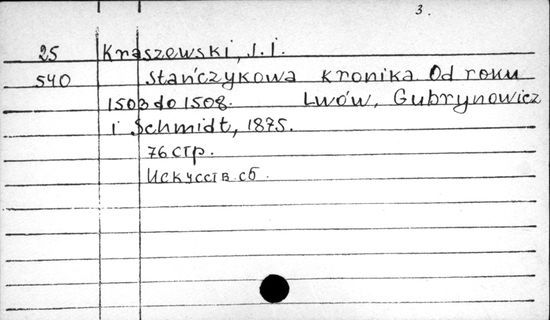 3.
25 Kraszewski, J. I.
540 Stańczykowa kronika Od roku
1503 do 1508. Lwów, Gubrynowicz
i Schmidt, 1875.
76 стр.
Искусств сб.